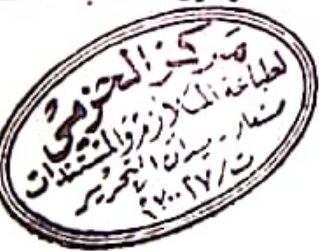 مركز الحزمي
لطباعة الملازم والمستندات
ميدان التحرير
ت/٢٧٠٠٢٧